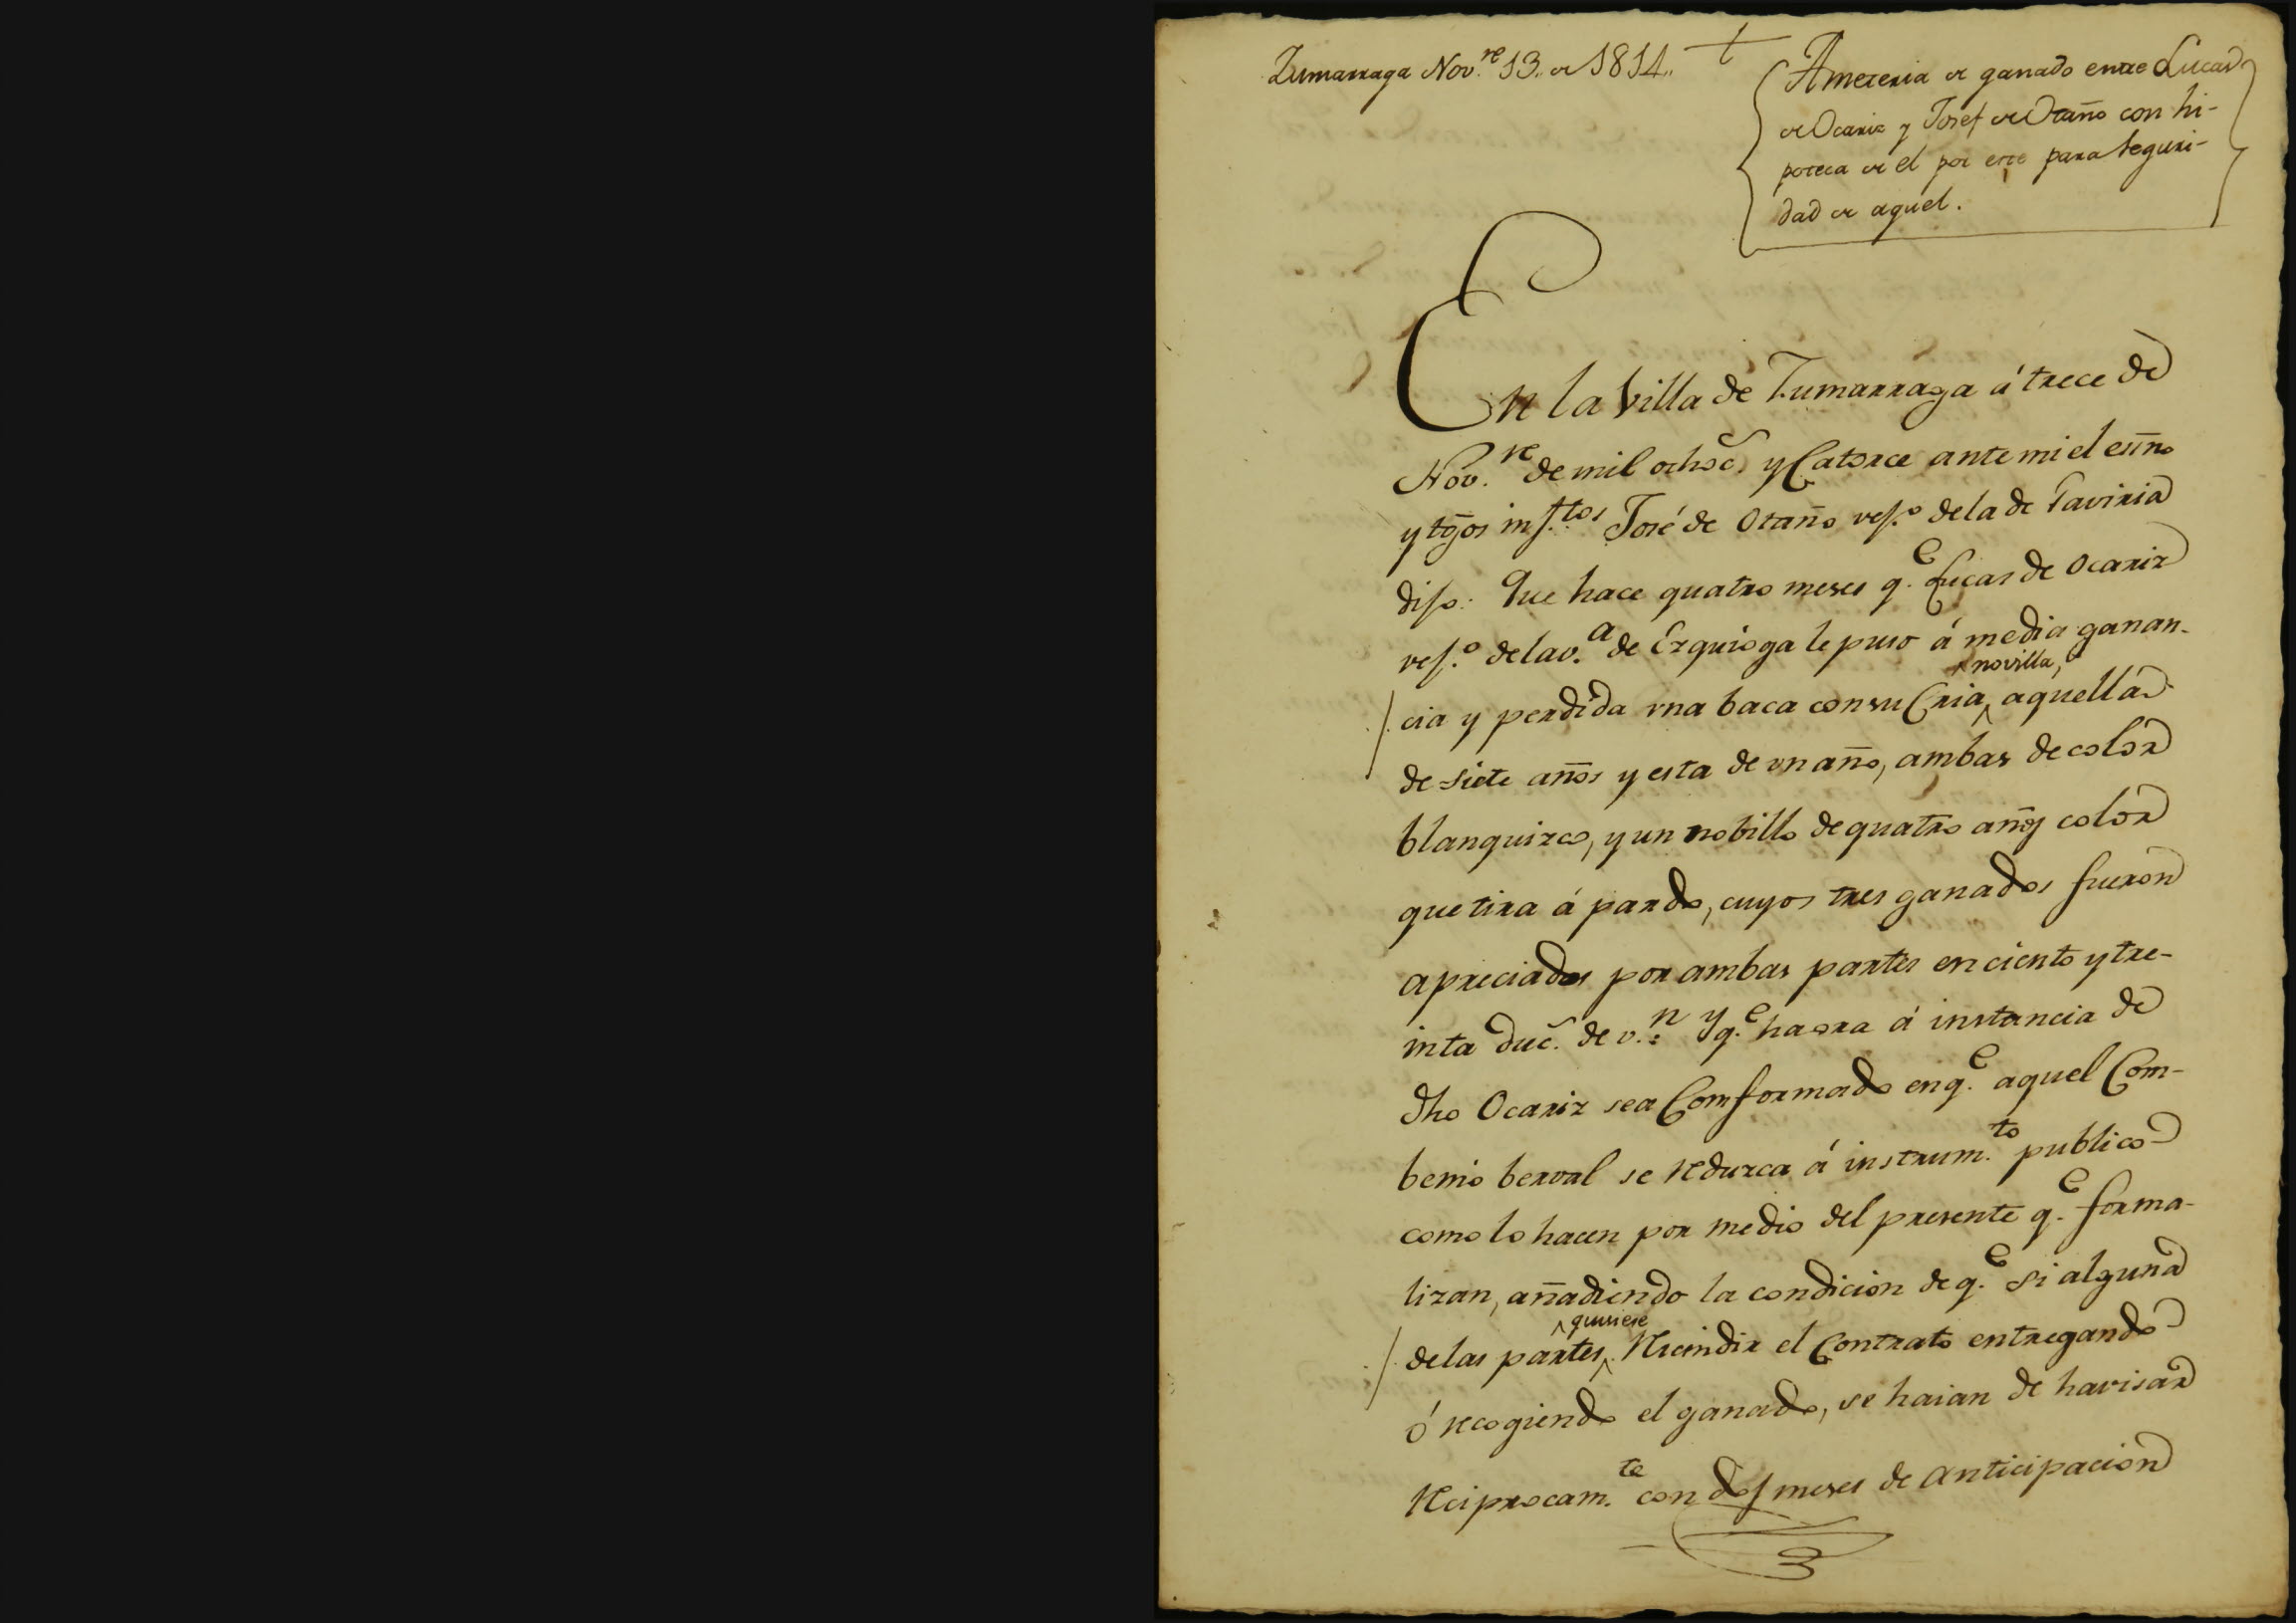 Zumarraga Nov.re 13. de 1814.
Ametería de ganado entre Lucas
de Ocariz y Josef de Otaño con hi-
poteca de el por este para seguri-
dad de aquel.
En la Villa de Zumarraga á trece de
Nov.re de mil ochoc.s y Catorce ante mi el esño
y tgos inf.tos José de Otaño vef.o de la de Gaviria
difo: Que hace quatro meses q.e Lucas de Ocariz
vef.o de la v.a de Ezquioga le puso á media ganan-
novilla,
cia y perdida vna baca con su Cria aquella
de siete años y esta de vn año, ambas de color
blanquizco, y un nobillo de quatro años color
que tira á pardo, cuyos tres ganados fueron
apreciados por ambas partes en ciento y tre-
inta duc.s de v.n y q.e haora á instancia de
dho Ocariz sea Comformado en q.e aquel Com-
benio berval se reduzca á instrum.to publico
como lo hacen por medio del presente q.e forma-
lizan, añadiendo la condicion de q.e si alguna
quisiere
de las partes recindir el Contrato entregando
ó recogiendo el ganado, se haian de havisar
reciprocam.te con dos meses de anticipacion